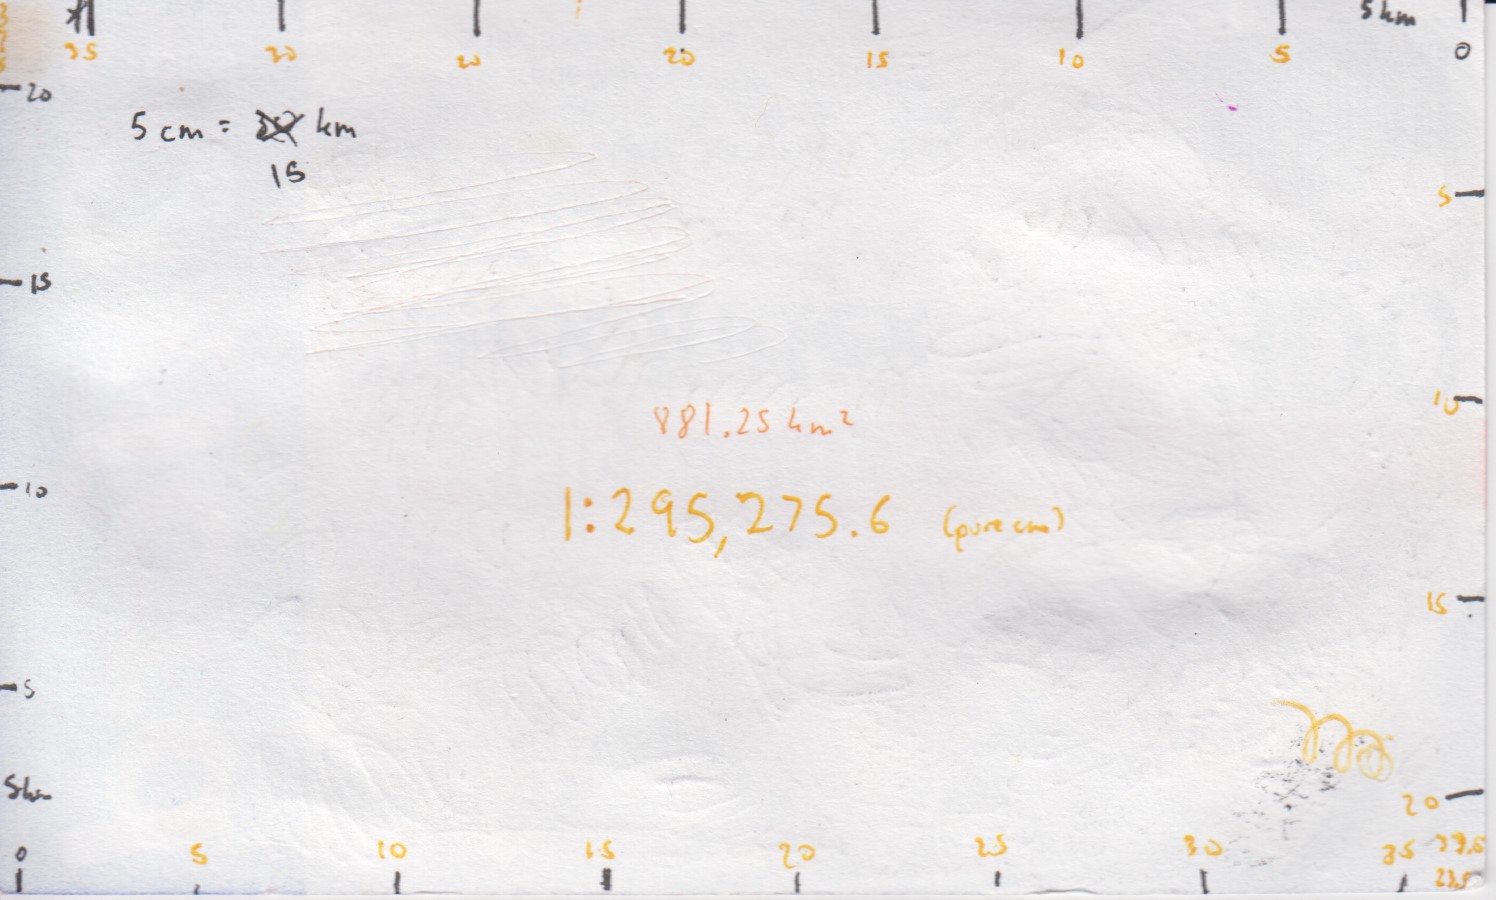 5 km
35 30 20 20 15 10 5 0
20
5 cm = km
15
5
15
10
881.25 km²
10
1:295,275.6 (pure cm)
15
5
5km
20
0 5 10 15 20 25 30 35
23.5